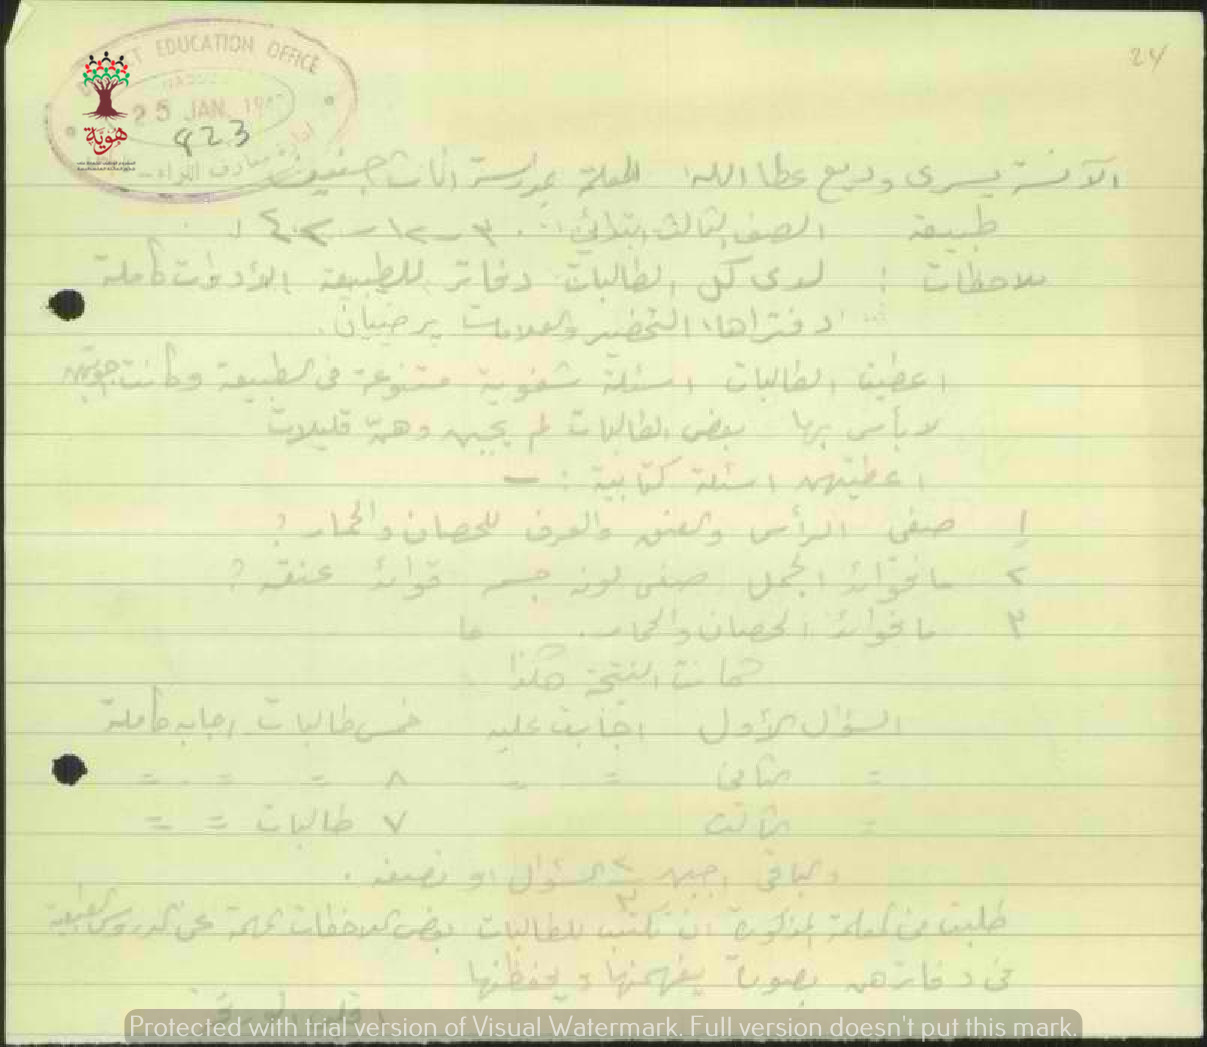 24
DISTRICT EDUCATION OFFICE
25 JAN. 194
923
هوية
الآنسة يسرى وديع عطا الله المعلمة بمدرسة اناث جنين
طبيعة الصف الثالث ابتدائي
ملاحظات : لدى كل الطالبات دفاتر للطبيعة الأدوات كاملة
دفتراها التحضير والعلامات يرضيان.
اعطيت الطالبات اسئلة شفوية متنوعة في الطبيعة وكانت اجوبتهن
لا بأس بها بعض الطالبات لم يجبن وهنّ قليلات
اعطيتهن اسئلة كتابية :-
1 صفي الرأس والعنق والعرف للحصان والحمار ؟
٢ ما فوائد الجمل صفي لون جسمه فوائد عنقه ؟
٣ ما فوائد الحصان والحمار. ما
فكانت النتيجة هكذا
السؤال الأول اجابت عليه خمس طالبات اجابه كاملة
= الثاني = = ٨ = = =
= الثالث ٧ طالبات = =
والباقي اجبن ٢/٣ السؤال او نصفه .
طلبت من المعلمة المذكورة ان تكتب للطالبات بعض الملاحظات المهمة عن الدروس الطبيعية
في دفاترهن بصورة يفهمنها ويحفظنها
اقلب الورقة
Protected with trial version of Visual Watermark. Full version doesn't put this mark.